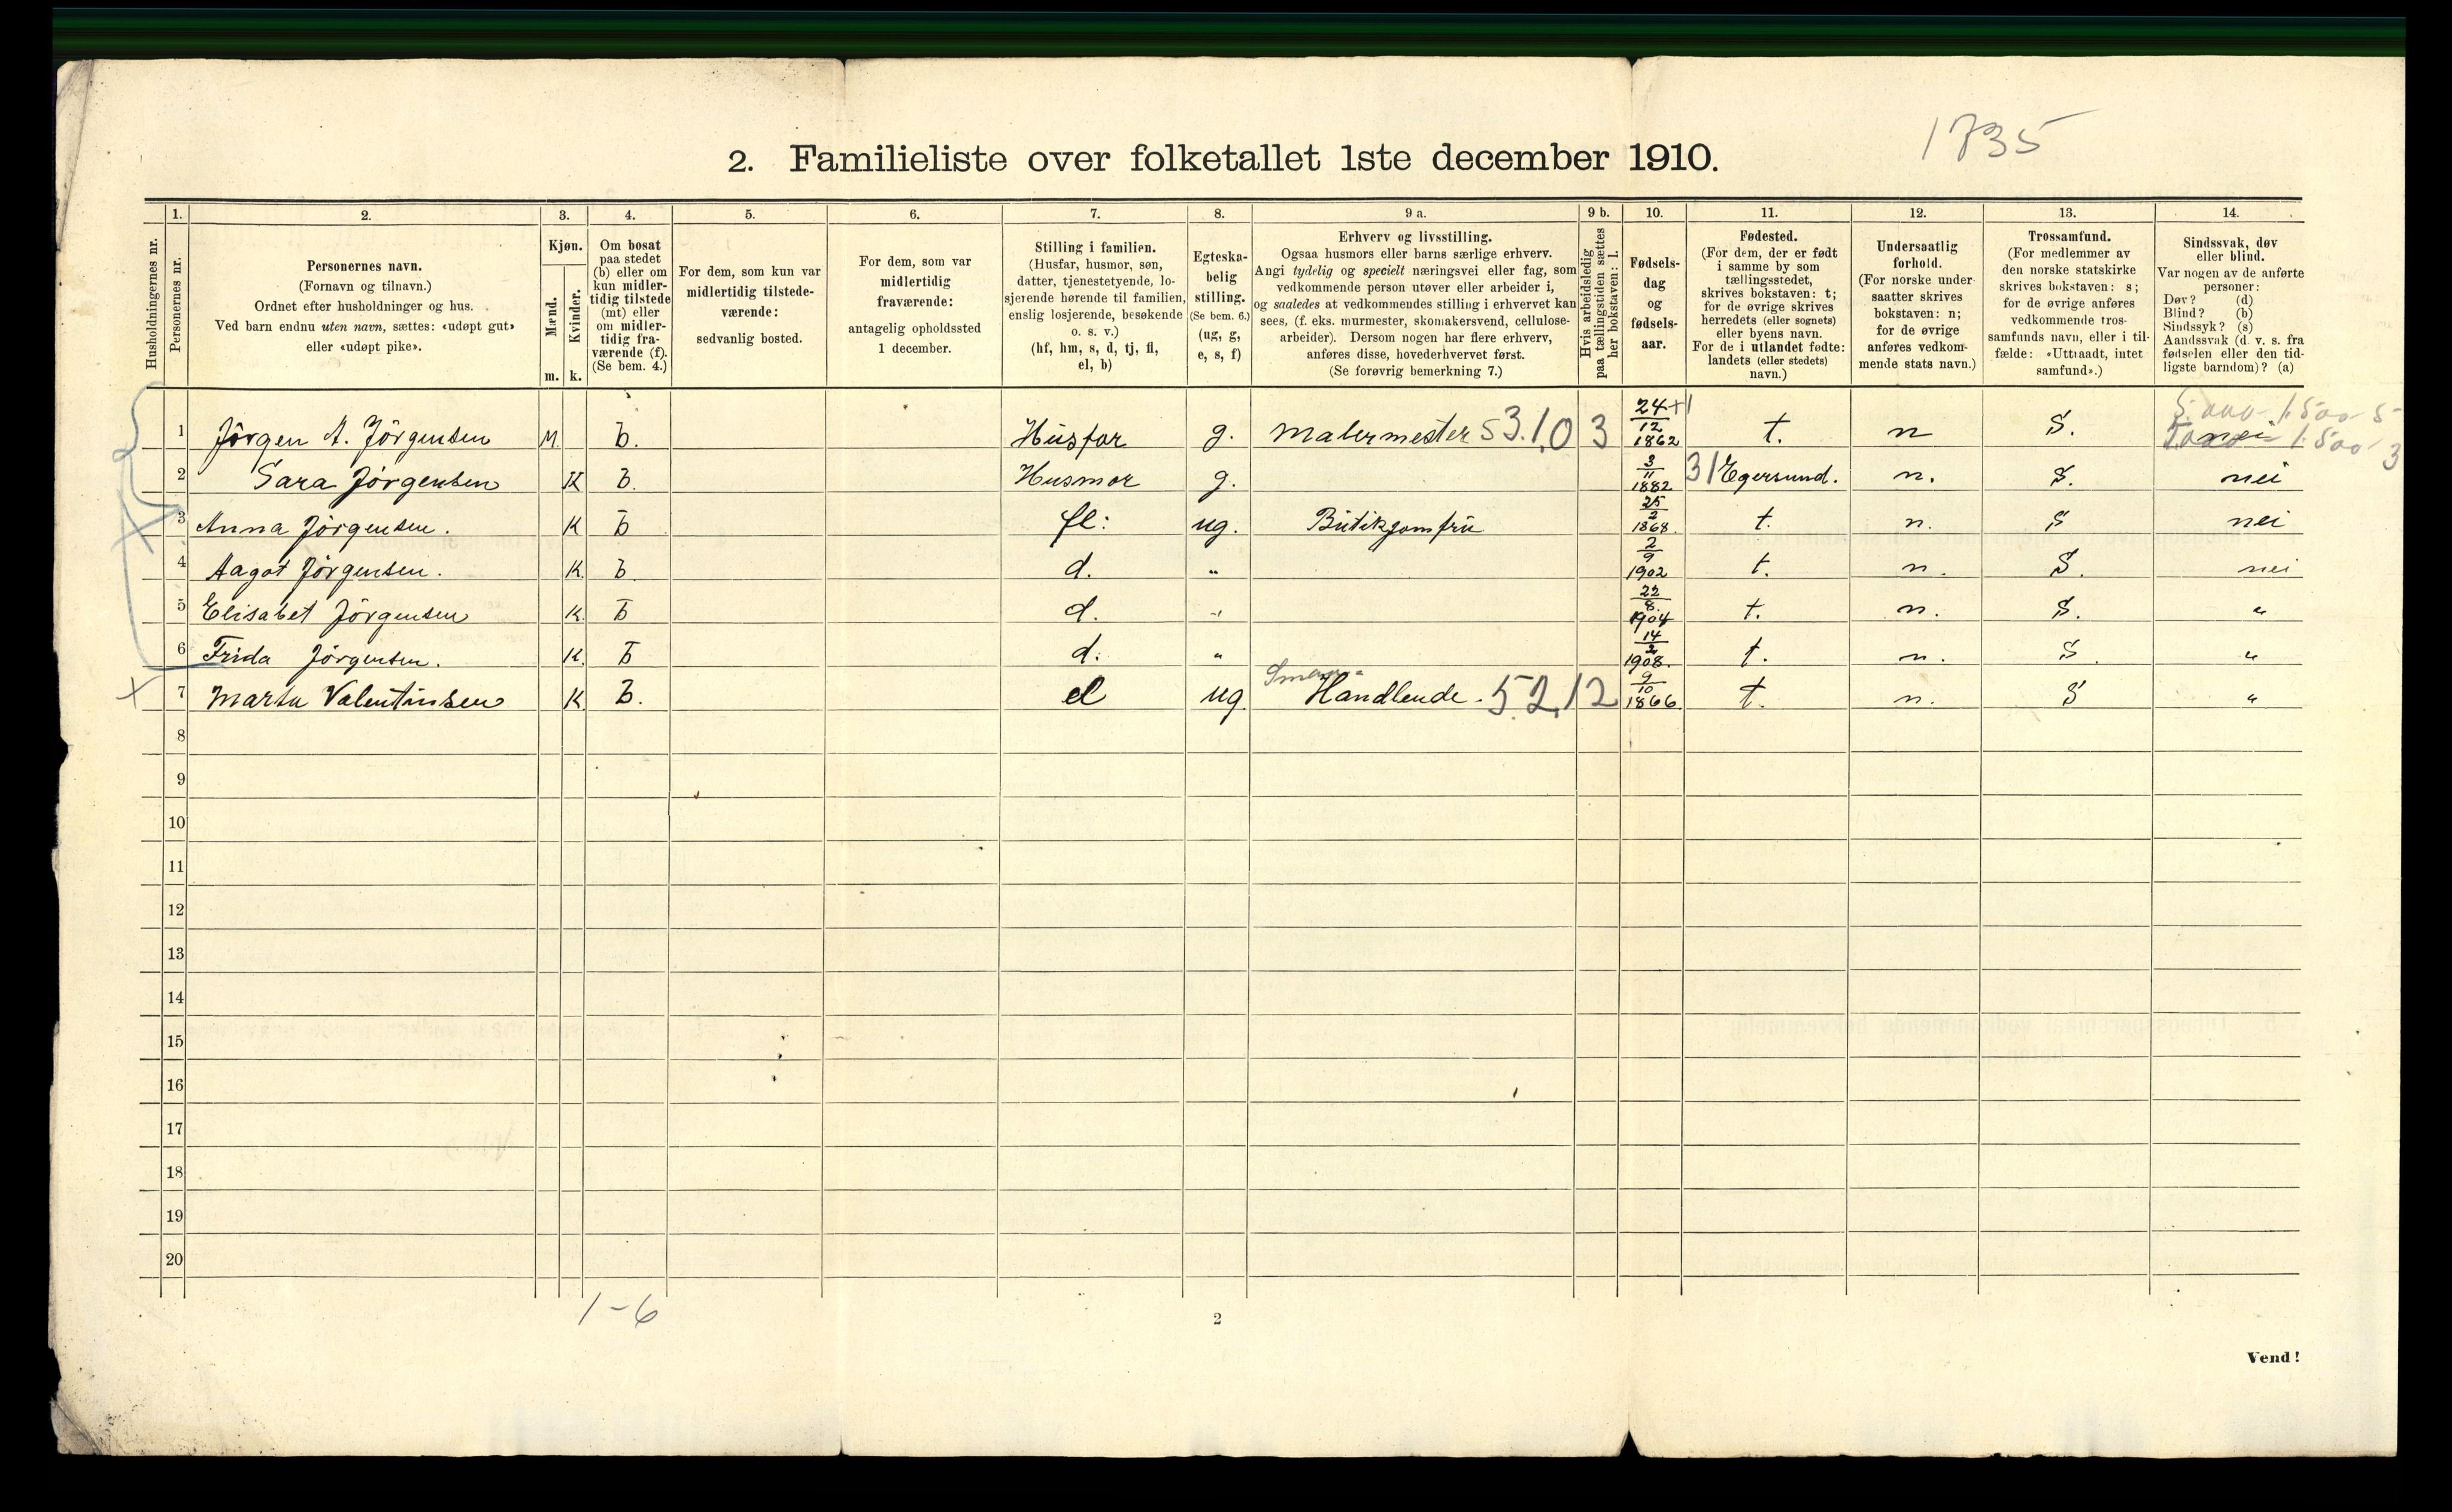 1735
2. Familieliste over folketallet 1ste december 1910.
Husholdningernes nr.
1. Personernes nr.
2. Personernes navn. (Fornavn og tilnavn.) Ordnet efter husholdninger og hus. Ved barn endnu uten navn, sættes: «udøpt gut» eller «udøpt pike».
3. Kjøn. Mænd. m. Kvinder. k.
4. Om bosat paa stedet (b) eller om kun midlertidig tilstede (mt) eller om midlertidig fraværende (f). (Se bem. 4.)
5. For dem, som kun var midlertidig tilstedeværende: sedvanlig bosted.
6. For dem, som var midlertidig fraværende: antagelig opholdssted 1 december.
7. Stilling i familien. (Husfar, husmor, søn, datter, tjenestetyende, losjerende hørende til familien, enslig losjerende, besøkende o. s. v.) (hf, hm, s, d, tj, fl, el, b)
8. Egteskabelig stilling. (Se bem. 6.) (ug, g, e, s, f)
9 a. Erhverv og livsstilling. Ogsaa husmors eller barns særlige erhverv. Angi tydelig og specielt næringsvei eller fag, som vedkommende person utøver eller arbeider i, og saaledes at vedkommendes stilling i erhvervet kan sees, (f. eks. murmester, skomakersvend, cellulosearbeider). Dersom nogen har flere erhverv, anføres disse, hovederhvervet først. (Se forøvrig bemerkning 7.)
9 b. Hvis arbeidsledig paa tællingstiden sættes her bokstaven: l.
10. Fødselsdag og fødselsaar.
11. Fødested. (For dem, der er født i samme by som tællingsstedet, skrives bokstaven: t; for de øvrige skrives herredets (eller sognets) eller byens navn. For de i utlandet fødte: landets (eller stedets) navn.)
12. Undersaatlig forhold. (For norske undersaatter skrives bokstaven: n; for de øvrige anføres vedkommende stats navn.)
13. Trossamfund. (For medlemmer av den norske statskirke skrives bokstaven: s; for de øvrige anføres vedkommende trossamfunds navn, eller i tilfælde: «Uttraadt, intet samfund».)
14. Sindssvak, døv eller blind. Var nogen av de anførte personer: Døv? (d) Blind? (b) Sindssyk? (s) Aandssvak (d. v. s. fra fødselen eller den tidligste barndom)? (a)
5.000 1.500 5
1 Jörgen A. Jörgensen M. b. Husfar g. Malermester 53.1,0 3 24/12 1862 +1 t. n S. nei 1.500 3
2 Sara Jörgensen K b. Husmor g. 3/11 1882 31 Egersund. n. S. nei
3 Anna Jörgensen. K b fl: ug. Butikjomfru 25/2 1868. t. n. S nei
4 Aagot Jörgensen. K. b. d. " 2/9 1902 t. n. S. nei
5 Elisabet Jörgensen K. b d. " 22/8. 1904 t. n. S. "
6 Frida Jörgensen. K. b d. " 14/2 1908. t. n. S. "
7 Marta Valentinsen K b. el ug. Handlende. 52,1 2 9/10 1866. t. n. S "
8
9
10
11
12
13
14
15
16
17
18
19
20
1-6
2
Vend!